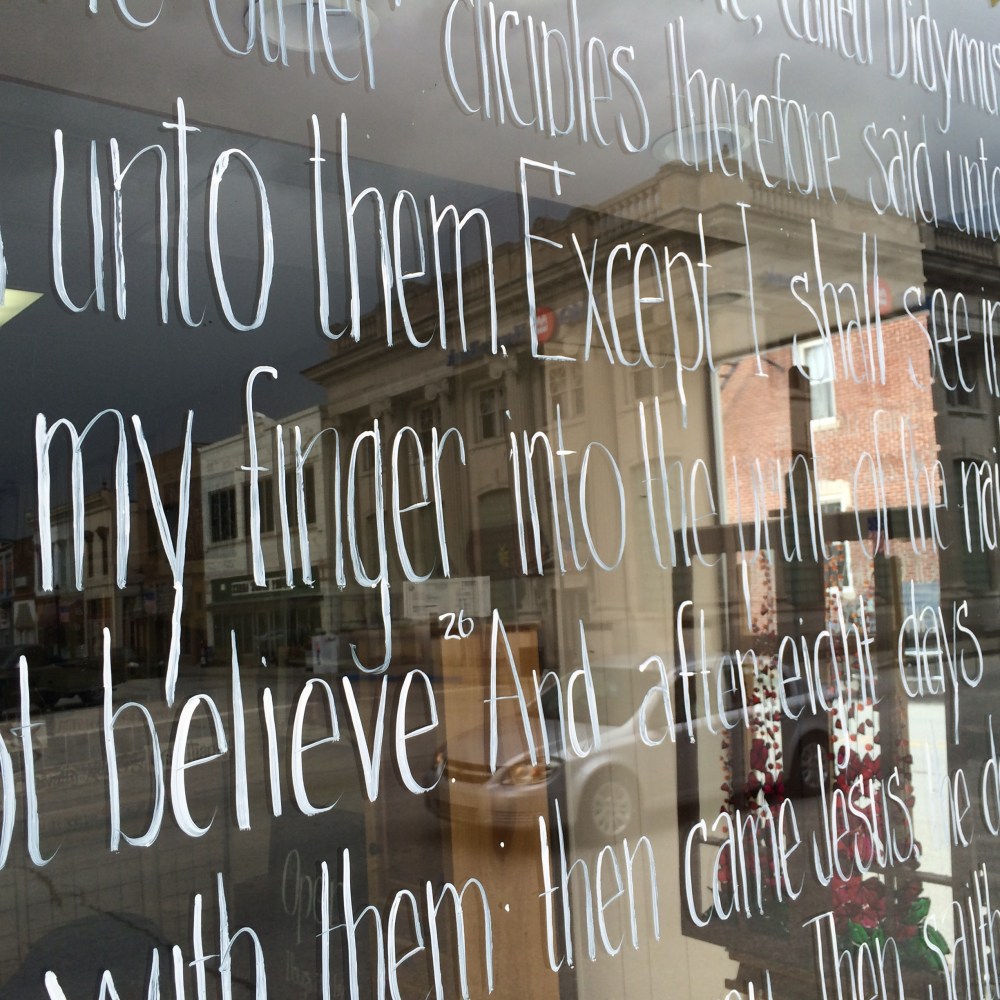 called Didymus
other diciples therefore said unto
unto them, Except I shall see in
my finger into the print of the nai
ot believe. 26 And after eight days
with them: then came Jesus, he d
Then saith